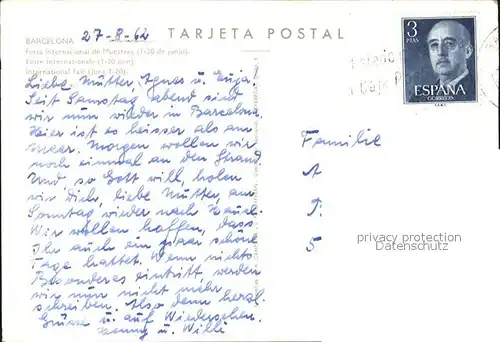 TARJETA POSTAL
BARCELONA
27-8-62
Feria Internacional de Muestras (1-20 de junio).
Foire Internationale (1-20 juin).
International Fair (June 1-20).
Liebe Mutter, Agnes u.
Seit Samstag abend sind
wir nun wieder in Barcelona.
Hier ist es heisser als am
Meer. Morgen wollen wir
noch einmal an den Strand.
Und, so Gott will, holen
wir Dich, liebe Mutter, am
Sonntag wieder nach Hause.
Wir wollen hoffen, dass
Ihr auch ein paar schöne
Tage hattet. Wenn nichts
Besonderes eintritt, werden
wir nun nicht mehr
schreiben. Also denn herzl.
Grüsse u. auf Wiedersehen.
u. Willi
3
PTAS
ESPAÑA
CORREOS
Familie
privacy protection
Datenschutz